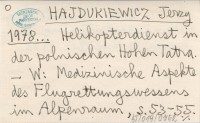 HAJDUKIEWICZ Jerzy
1978... Helikopterdienst in
der polnischen Hohen Tatra.
— W: Medizinische Aspekte
des Flugrettungswesens
im Alpenraum, s. 53-55.